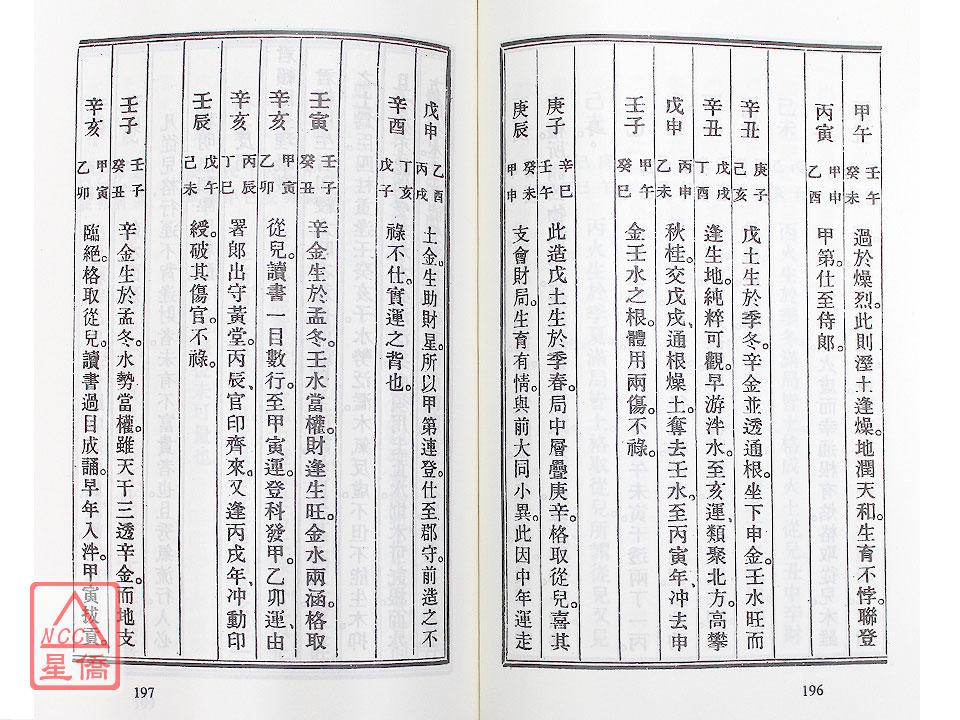 甲午 壬午 癸未 過於燥烈。此則溼土逢燥。地潤天和。生育不悖。聯登
丙寅 甲申 乙酉 甲第。仕至侍郎。
辛丑 庚子 己亥 戊土生於季冬。辛金並透通根。坐下申金。壬水旺而
辛丑 戊戌 丁酉 逢生地。純粹可觀。早游泮水。至亥運、類聚北方。高攀
戊申 丙申 乙未 秋桂。交戊戌、通根燥土。奪去壬水。至丙寅年、冲去申
壬子 甲午 癸巳 金壬水之根。體用兩傷。不祿。
庚子 辛巳 壬午 此造戊土生於季春。局中層疊庚辛。格取從兒。喜其
庚辰 癸未 甲申 支會財局。生育有情。與前大同小異。此因中年運走
196
戊申 乙酉 丙戌 土金。生助財星。所以甲第連登。仕至郡守。前造之不
辛酉 丁亥 戊子 祿不仕。實運之背也。
壬寅 壬子 癸丑 辛金生於孟冬。壬水當權。財逢生旺。金水兩涵。格取
辛亥 甲寅 乙卯 從兒。讀書一目數行。至甲寅運。登科發甲。乙卯運、由
辛亥 丙辰 丁巳 署郎出守黃堂。丙辰、官印齊來。又逢丙戌年、冲動印
壬辰 戊午 己未 綬。破其傷官。不祿。
壬子 壬子 癸丑 辛金生於孟冬。水勢當權。雖天干三透辛金。而地支
辛亥 甲寅 乙卯 臨絕。格取從兒。讀書過目成誦。早年入泮。甲寅拔貢。
197
NCC
星僑